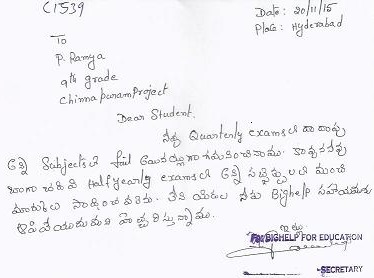 C1539
Date: 20/11/15
Place: Hyderabad
To
P. Ramya
9th grade
Chinnapuram Project
Dear Student,
నీవు Quarterly exams లో దాదాపు
అన్ని Subjects లో fail అయినట్లుగా గమనించినాము. కావున నీవు
బాగా చదివి Half yearly exams లో అన్ని సబ్జెక్టులలో మంచి
మార్కులు సాధించవలెను. లేని యెడల నీకు Bighelp సహాయమును
ఆపివేయుదుమని హెచ్చరిస్తున్నాము.
ఇట్లు
For BIGHELP FOR EDUCATION
SECRETARY